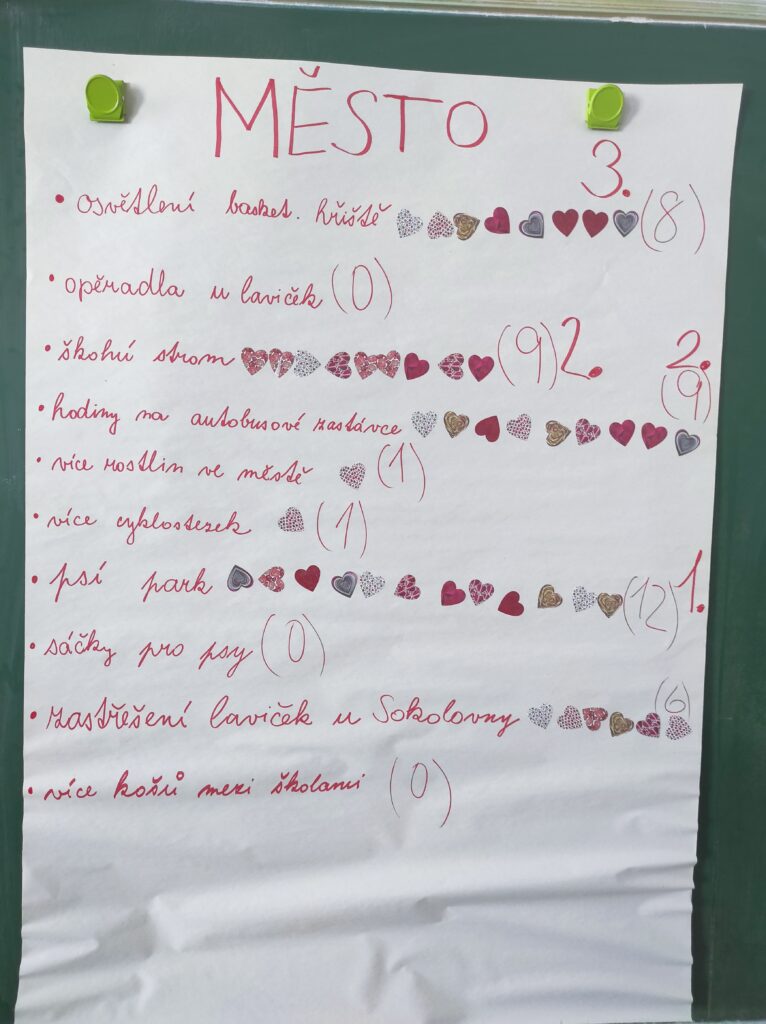 MĚSTO
3.
• osvětlení basket. hřiště (8)
• opěradla u laviček (0)
• školní strom (9) 2.
2.
(9)
• hodiny na autobusové zastávce
• více rostlin ve městě (1)
• více cyklostezek (1)
• psí park (12) 1.
• sáčky pro psy (0)
(6)
• zastřešení laviček u Sokolovny
• více košů mezi školami (0)